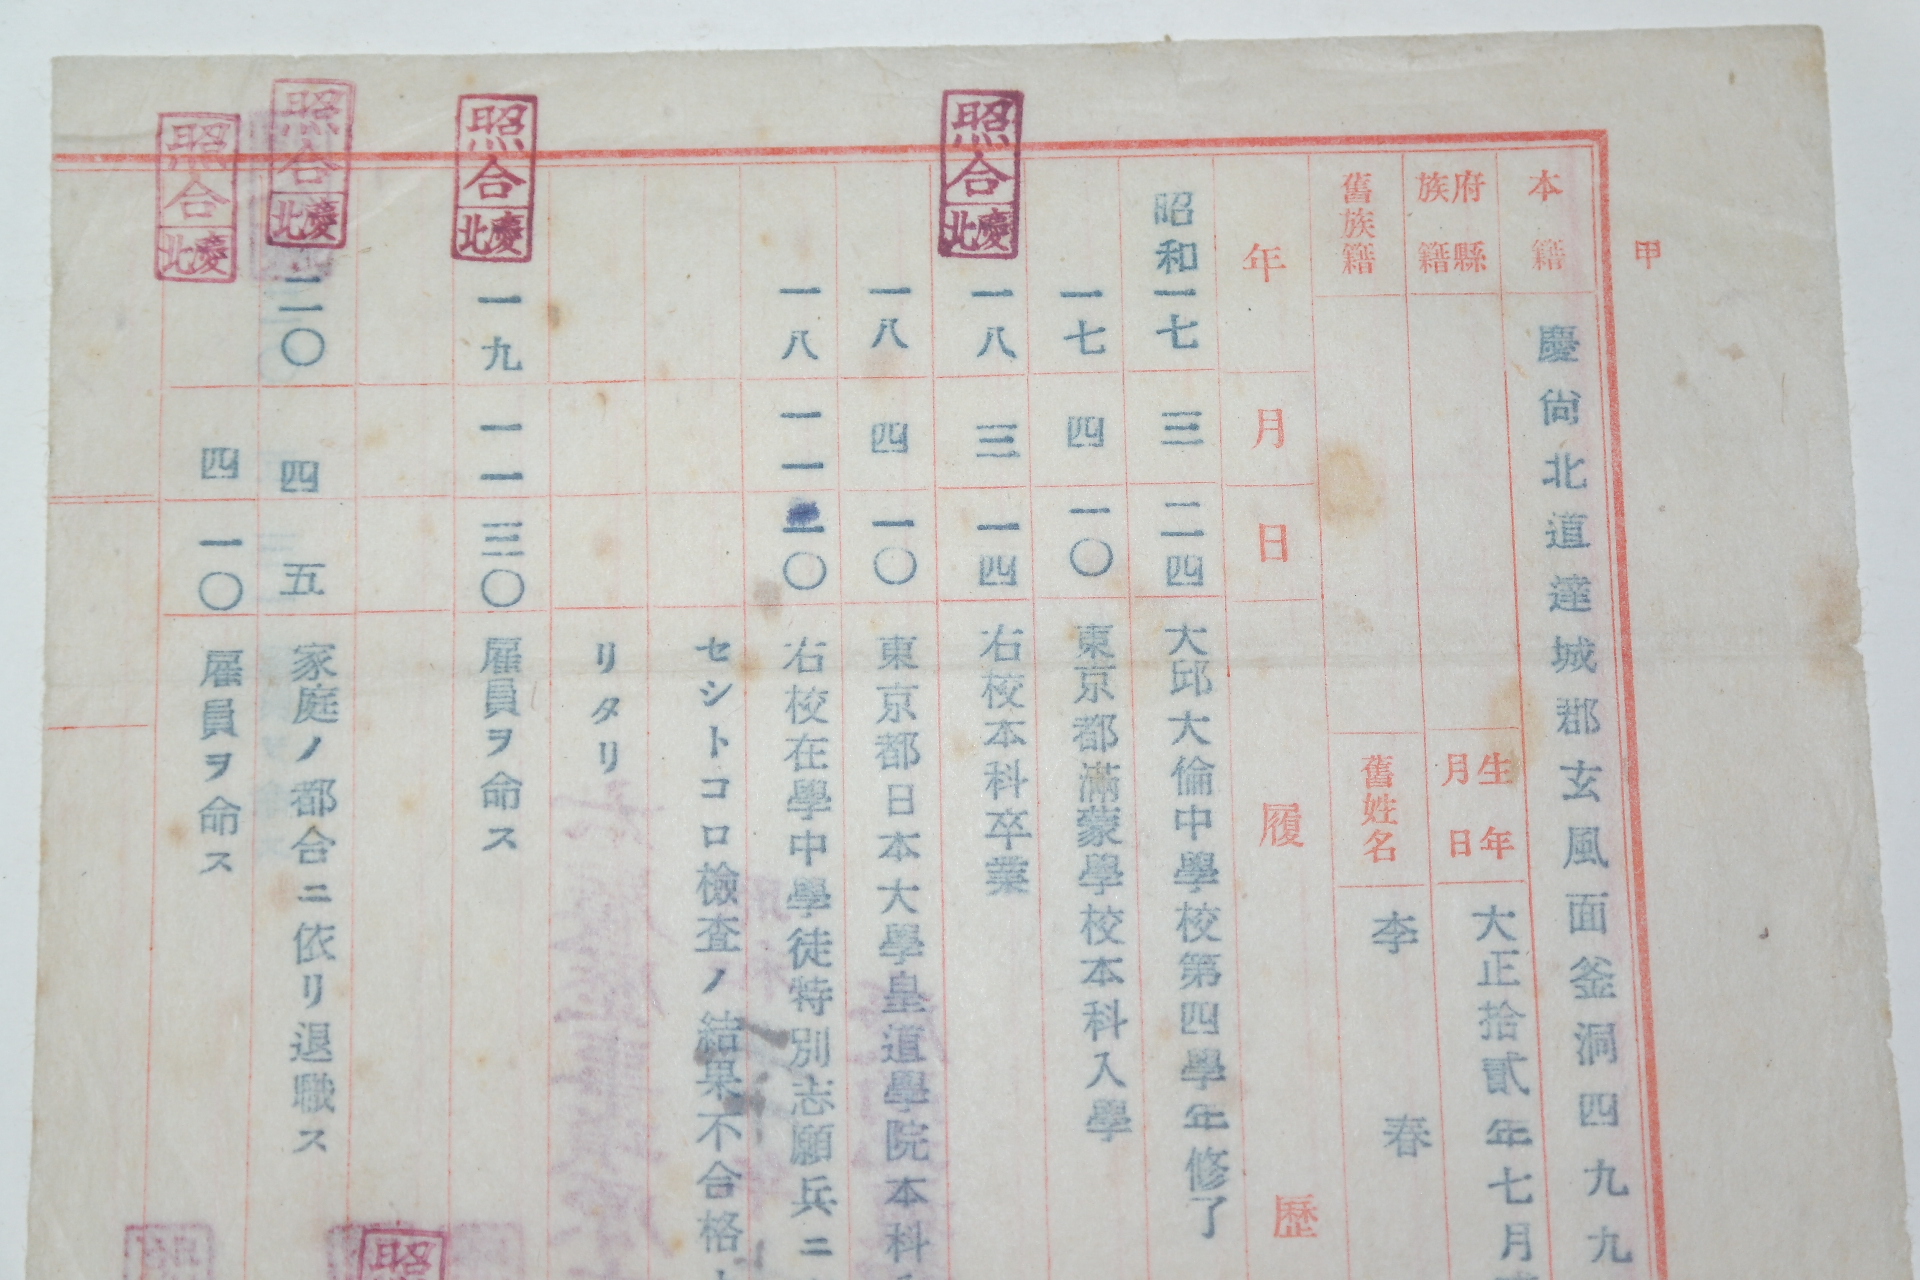 甲
本籍
慶尙北道達城郡玄風面釜洞四九九
府縣
族籍
生年
月日
大正拾貳年七月
舊族籍
舊姓名
李春
年月日
履歷
昭和一七 三 二四 大邱大倫中學校第四學年修了
一七 四 一〇 東京都滿蒙學校本科入學
一八 三 一四 右校本科卒業
照合
慶北
一八 四 一〇 東京都日本大學皇道學院本科
一八 一一 二〇 右校在學中學徒特別志願兵ニ
セシトコロ檢査ノ結果不合格
リタリ
一九 一一 三〇 雇員ヲ命ス
照合
慶北
二〇 四 五 家庭ノ都合ニ依リ退職ス
照合
慶北
四 一〇 雇員ヲ命ス
照合
慶北
照